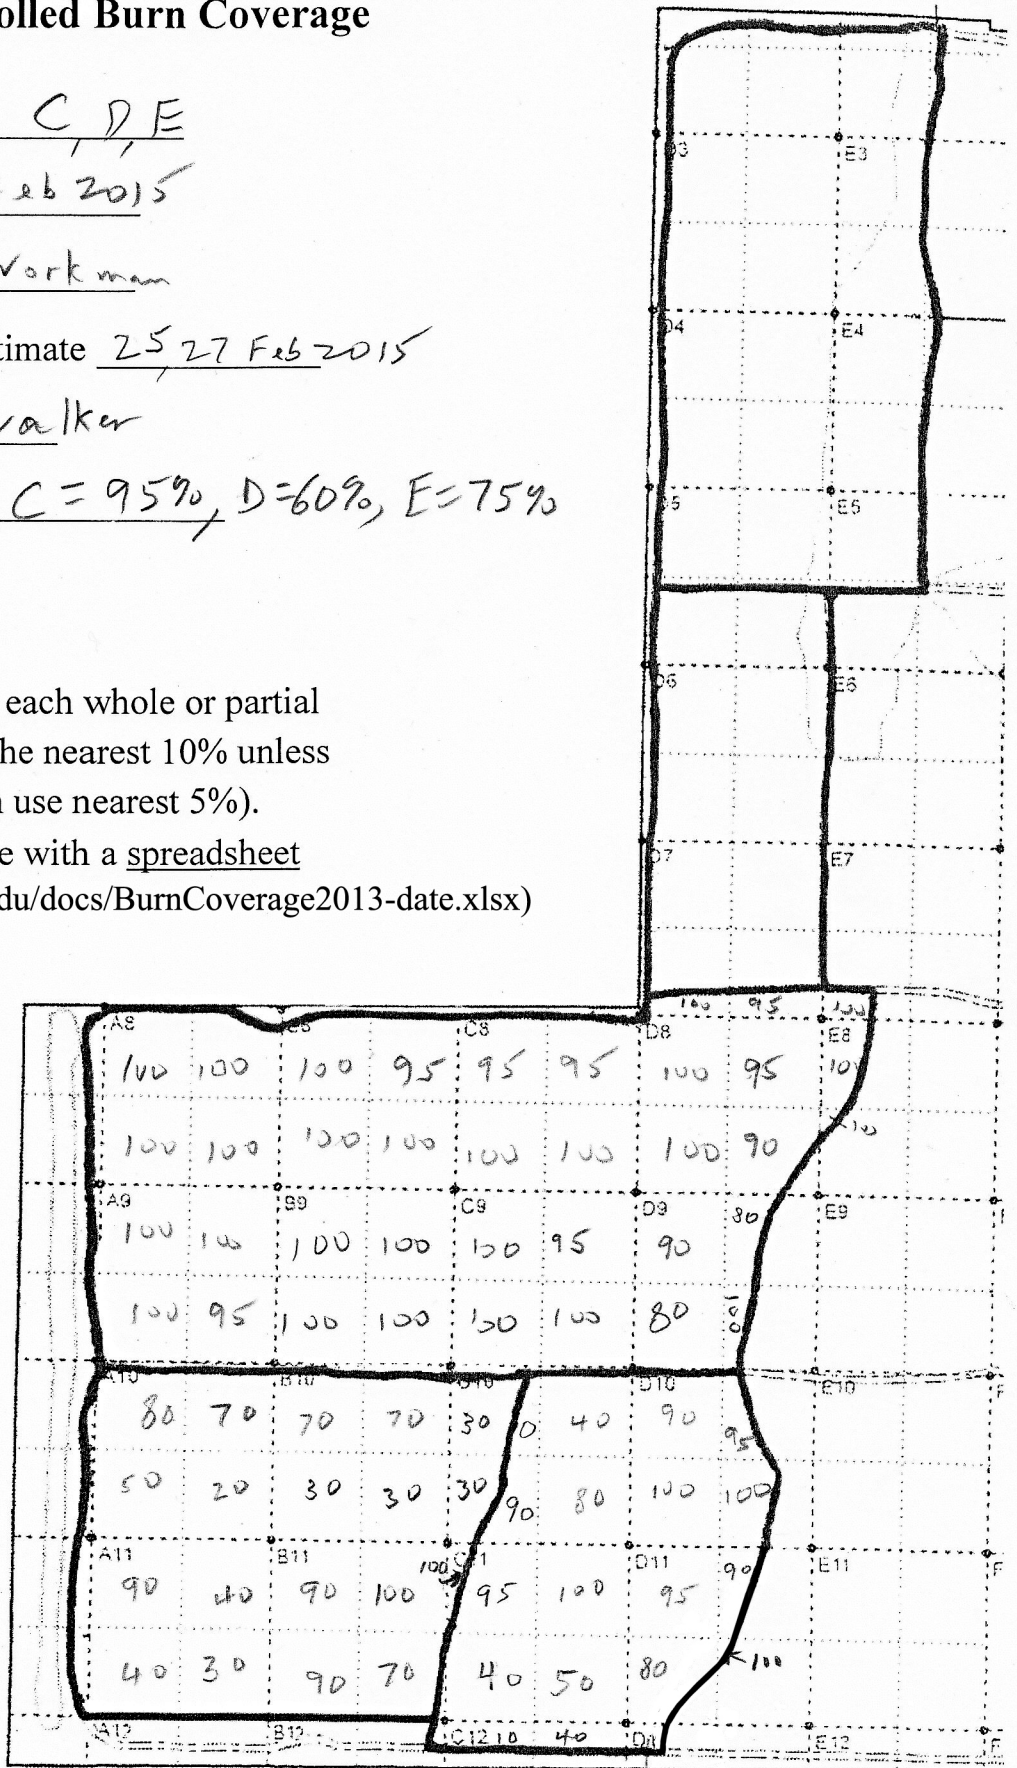 olled Burn Coverage
C, D, E
eb 2015
Workman
timate 25,27 Feb 2015
walker
C = 95%, D=60%, E=75%
each whole or partial
he nearest 10% unless
use nearest 5%).
e with a spreadsheet
du/docs/BurnCoverage2013-date.xlsx)
D3 E3
D4 E4
D5 E5
D6 E6
D7 E7
100 95 100
A8 B8 C8 D8 E8
100 100 100 95 95 95 100 95 100
10
100 100 100 100 100 100 100 90
A9 B9 C9 D9 80 E9
100 100 100 100 100 95 90
100 95 100 100 100 100 80 100
A10 B10 C10 D10 E10 F
80 70 70 70 30 0 40 90 95
50 20 30 30 30 90 80 100 100
A11 B11 100 C11 D11 90 E11 F
90 40 90 100 95 100 95
40 30 90 70 40 50 80 100
A12 B12 C12 10 40 E12 F